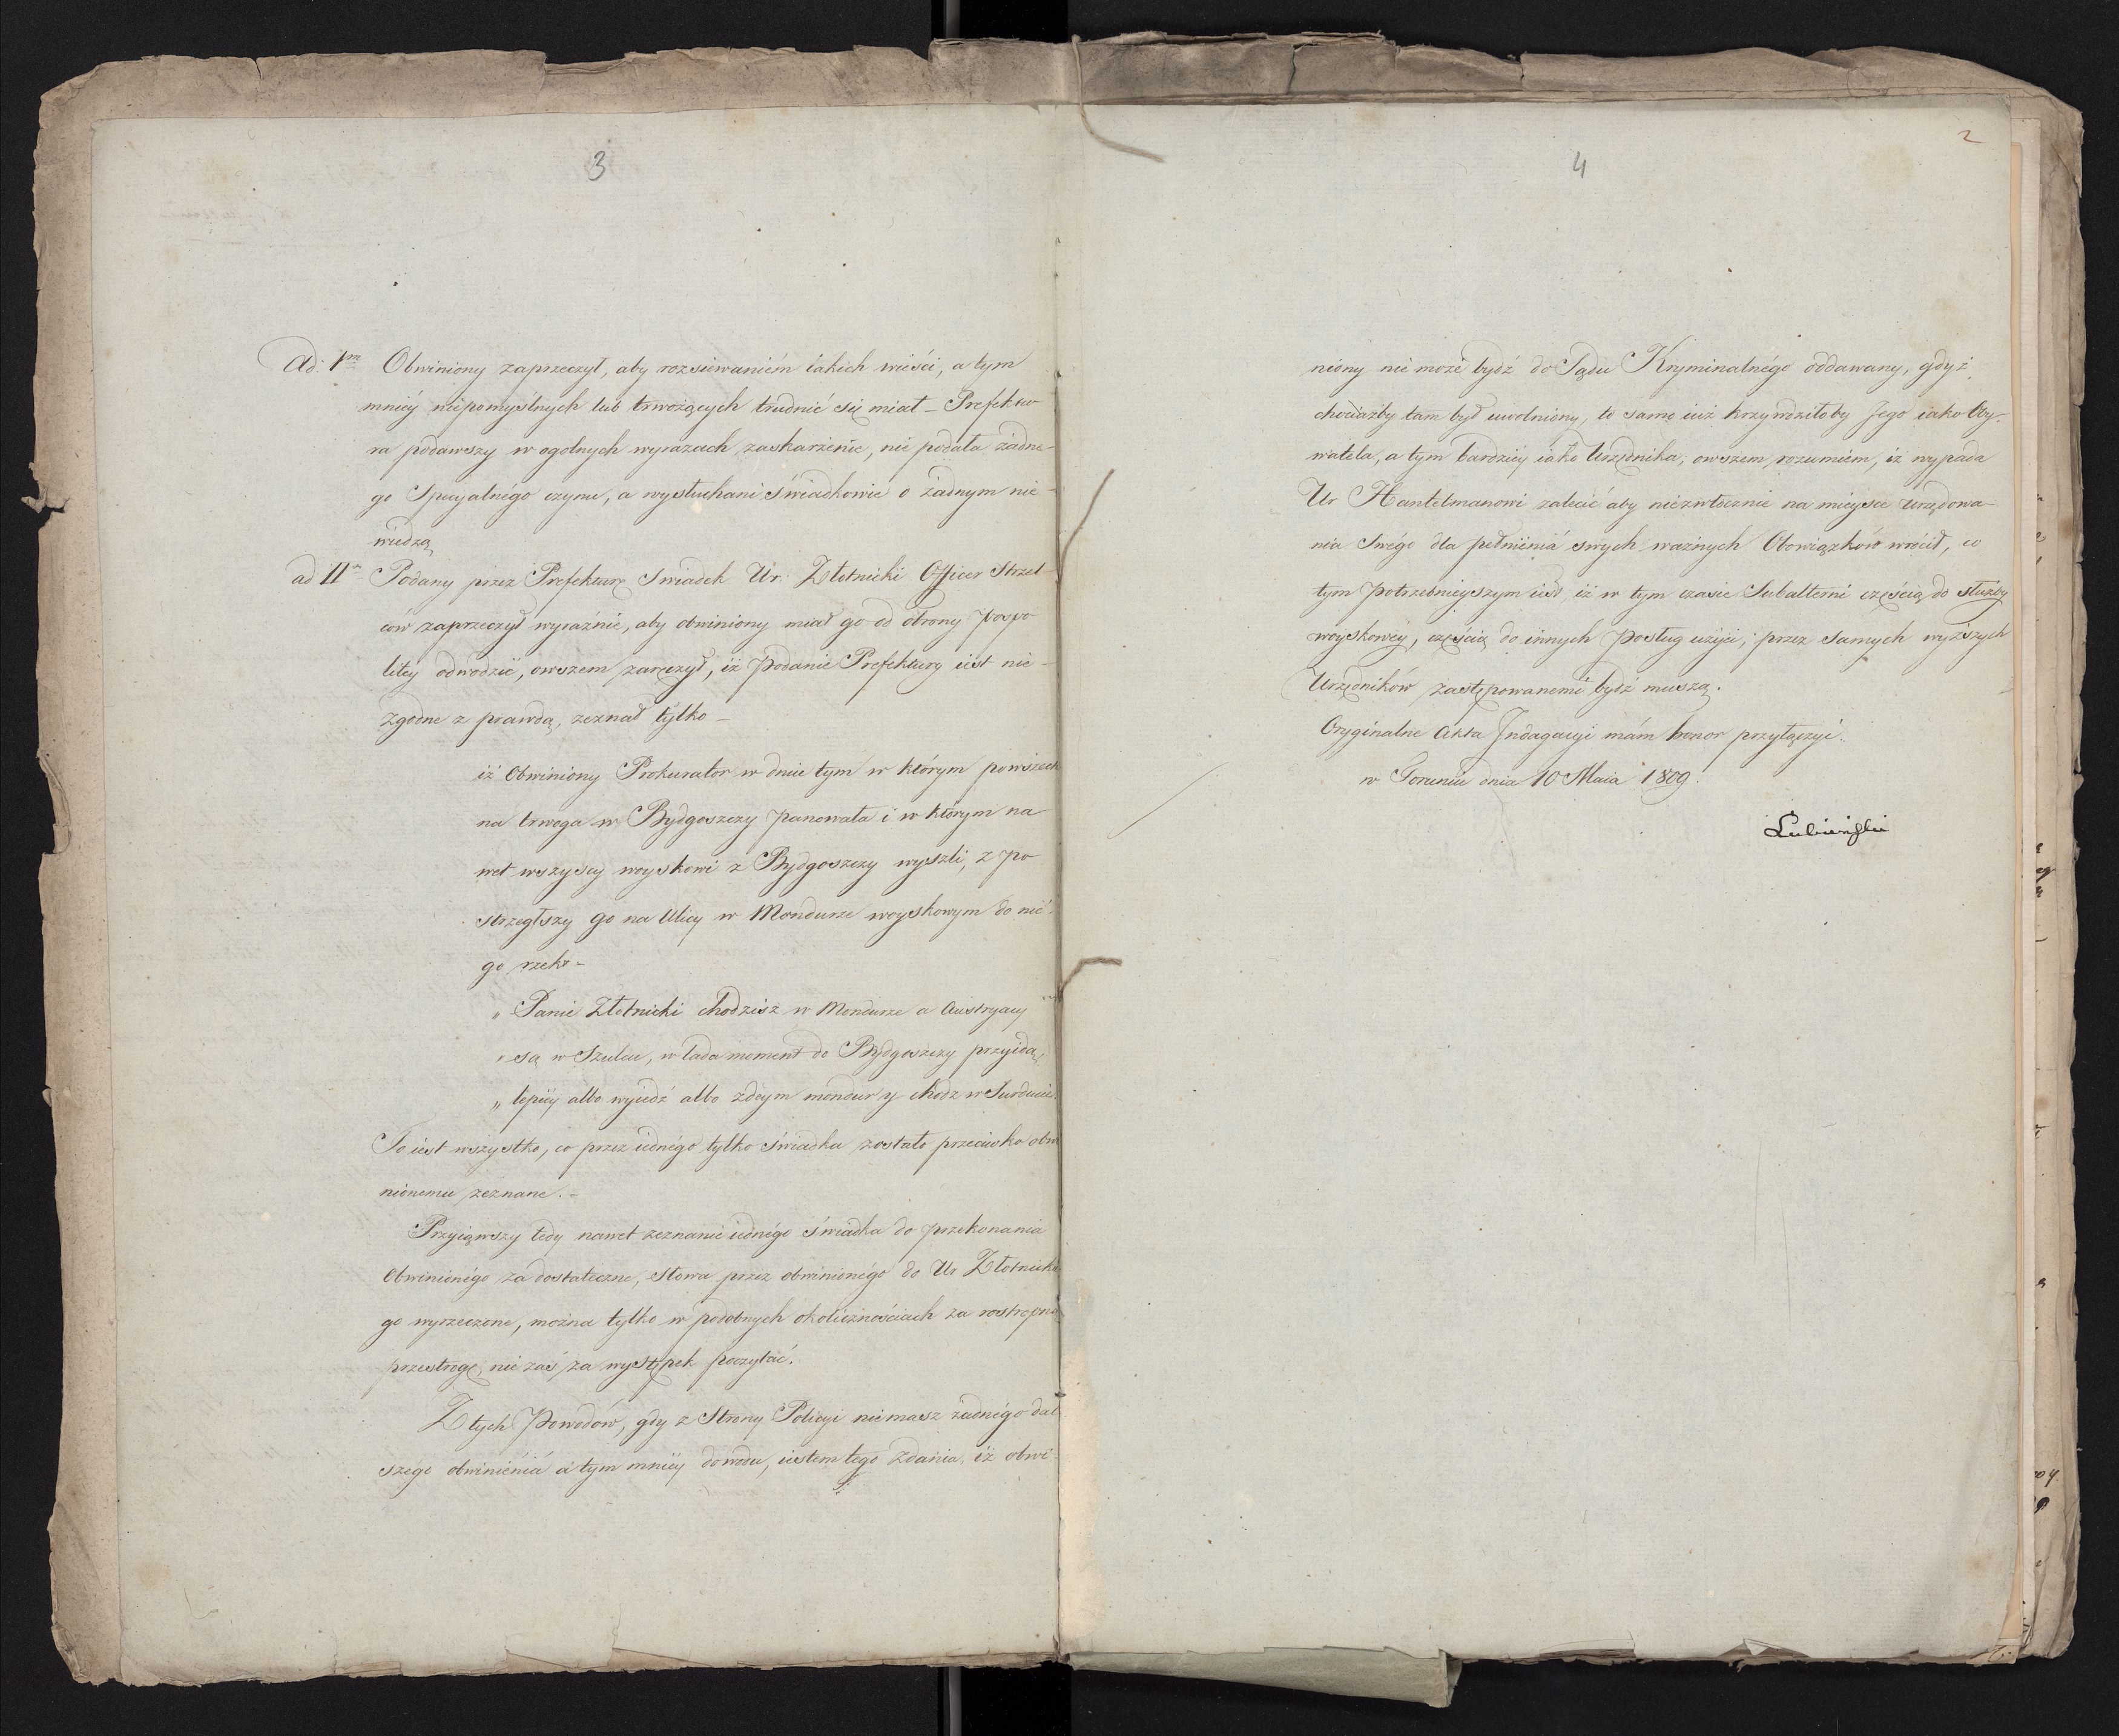 3
Ad. 1<sup>m</sup> Obwiniony zaprzeczył, aby rozsiewaniém takich wieści, a tym
mniéy niepomyslnych lub trwożących trudnić się miał _ Prefektu-
ra podawszy w ogolnych wyrazach zaskarżenie, nie podała żadne-
go Specyalnégo czynu, a wysłuchani świadkowie o żadnym nie-
wiedzą
ad II Podany przez Prefekturę Swiadek Ur. Złotnicki Officer Strzel-
ców zaprzeczył wyraźnie, aby obwiniony miał go od obrony pospo
litey odwodzić, owszem zaręczył, iż podanie Prefektury iest nie-
zgodne z prawdą, zeznał tylko _
iż Obwiniony Prokurator w dniu tym w którym powszech
na trwoga w Bydgoszczy panowała i w którym na
wet wszyscy woyskowi z Bydgoszczy wyszli, z po
strzegłszy go na Ulicy w Mondurze woyskowym do nie-
go rzekł -
„ Panie Złotnicki chodzisz w Mondurze a Austryacy
„ są w Szulcu, w lada moment do Bydgoszczy przyidą,
„ lepiéy albo wyiedź albo zdeym mondur y chodz w Surducie.
To iest wszystko, co przez iednégo tylko świadka zostało przeciwko obwi
nionemu zeznane. -
Przyiąwszy tedy nawet zeznanie iednégo świadka do przekonania
Obwinionégo za dostateczne, słowa przez obwinionégo do Ur Złotnickie
go wyrzeczone, można tylko w podobnych okolicznościach za rostropną
przestrogę, nie zaś za występek poczytać.
Z tych Powodów, gdy z Strony Policyi niemasz żadnégo dal
szego obwinienia a tym mniéy dowodu, iestem tego Zdania, iż obwi-
4
2
niony nie może bydź do Sądu Kryminalnégo oddawany, gdyż
chociażby tam był uwolniony, to samo iuż krzywdziłoby Jego iako Oby-
watela, a tym bardziéy iako Urzędnika; owszem rozumiem, iż wypada
Ur Hantelmanowi zalecić aby niezwłocznie na mieysce Urzędowa-
nia Swégo dla pełnieniá swych ważnych Obowiązków wrócił, co
tym potrzebnieyszym iest, iż w tym czasie Subalterni częścią do służby
woyskowéy, częścią do innych posług użyci, przez samych wyższych
Urzędników zastępowanemi bydź muszą.
Oryginalne Akta Jndagacyi mám honor przyłączyć.
w Toruniu dnia 10 Maia 1809.
Lubieński